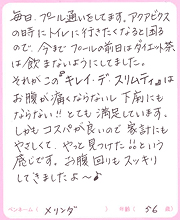 毎日、プール通いをしてます。アクアビクス
の時にトイレに行きたくなると困る
ので、今までプールの前日はダイエット茶
は飲まないようにしてました。
それがこの『キレイ・デ・スリムティ』は
お腹が痛くならないし下痢にも
ならない!!とても満足しています。
しかもコスパが良いので家計にも
やさしくて、やっと見つけた!!という
感じです。お腹回りもスッキリ
してきましたよ〜♪
ペンネーム( メリンダ ) 年齢( 56 歳)